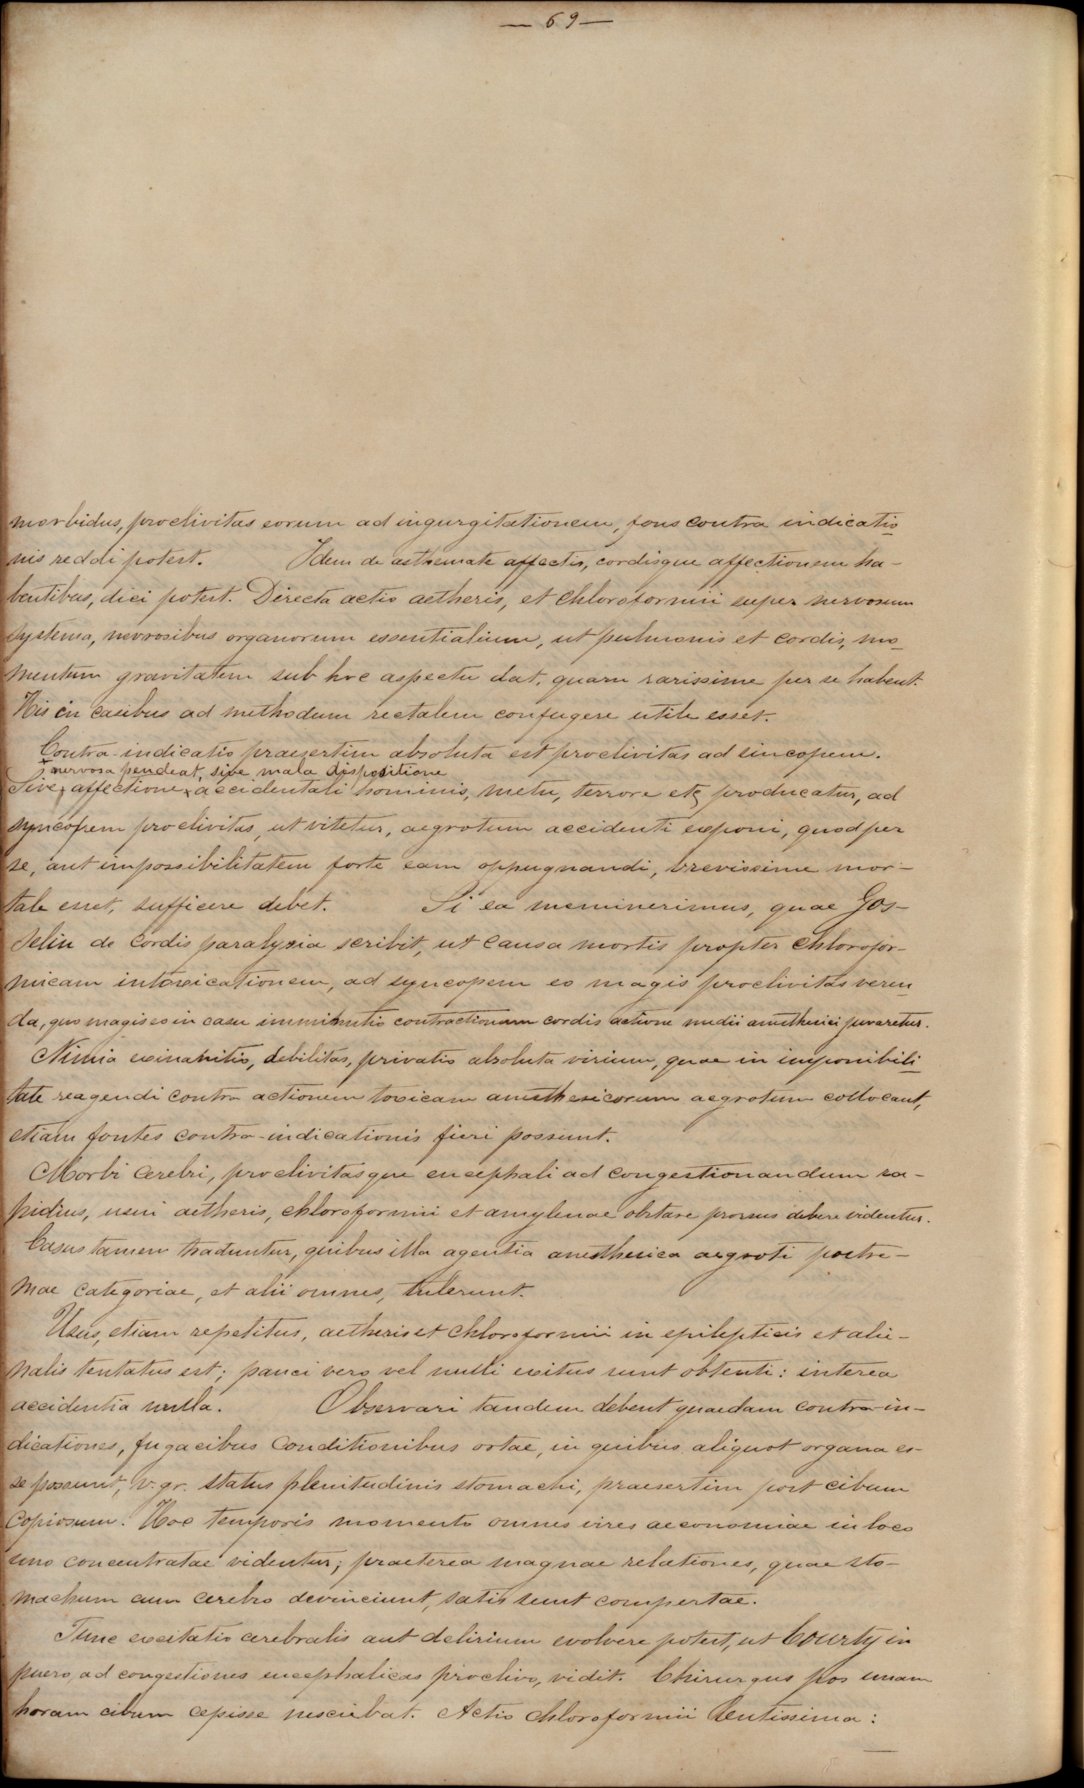 — 69 —
morbidus, proclivitas eorum ad ingurgitationem, fons contra indicatio
nis reddi potest. Idem de asthemate affectis, cordisque affectionem ha-
bentibus, dici potest. Directa actio aetheris, et chloroformii super nervosum
systema, nevrosibus organorum essentialium, ut pulmonis et cordis, mo-
mentum gravitatem sub hoc aspectu dat, quam rarissime per se habent.
His in casibus ad methodum rectalem confugere utile esset.
Contra-indicatio praesertim absoluta est proclivitas ad sincopem.
+ nervosa pendeat, sive mala dispositione
Sive + affectione x accidentali hominis, metu, terrore etc producatur, ad
syncopem proclivitas, ut vitetur, aegrotum accidenti exponi, quod per
se, aut impossibilitatem forte eam oppugnandi, brevissime mor-
tale esset, sufficere debet. Si ea meminerimus, quae Gos-
selin de cordis paralyzia scribit, ut causa mortis propter chlorofor-
micam intoxicationem, ad syncopem eo magis proclivitas veren-
da, quo magis eo in casu imminutio contractionum cordis actione medii anesthesici juvaretur.
Nimia exinanitio, debilitas, privatio absoluta virium, quae in imponibili
tate reagendi contra actionem toxicam anesthesicorum aegrotum collocant,
etiam fontes contra-indicationis fieri possunt.
Morbi cerebri, proclivitasque encephali ad congestionandum ra-
pidius, usui aetheris, chloroformii et amylenae obstare prorsus debere videntur.
Casus tamen traduntur, quibus illa agentia anesthesica aegroti postre-
mae categoriae, et alii omnes, tulerunt.
Usus, etiam repetitus, aetheris et chloroformii in epilepticis et alie-
natis tentatus est; pauci vero vel nulli exitus sunt obtenti: interea
accidentia nulla. Observari tandem debent quaedam contra-in-
dicationes, fugacibus conditionibus ortae, in quibus aliquot organa es-
se possunt, v. gr. status plenitudinis stomachi, praesertim post cibum
copiosum. Hoc temporis momento omnes vires aeconomiae in loco
uno concentratae videntur; praeterea magnae relationes, quae sto-
machum cum cerebro devinciunt, satis sunt compertae.
Tunc excitatio cerebralis aut delirium evolvere potest, ut Courty in
puero, ad congestiones encephalicas proclivo, vidit. Chirurgus pos unam
horam cibum cepisse nesciebat. Actio chloroformii lentissima: